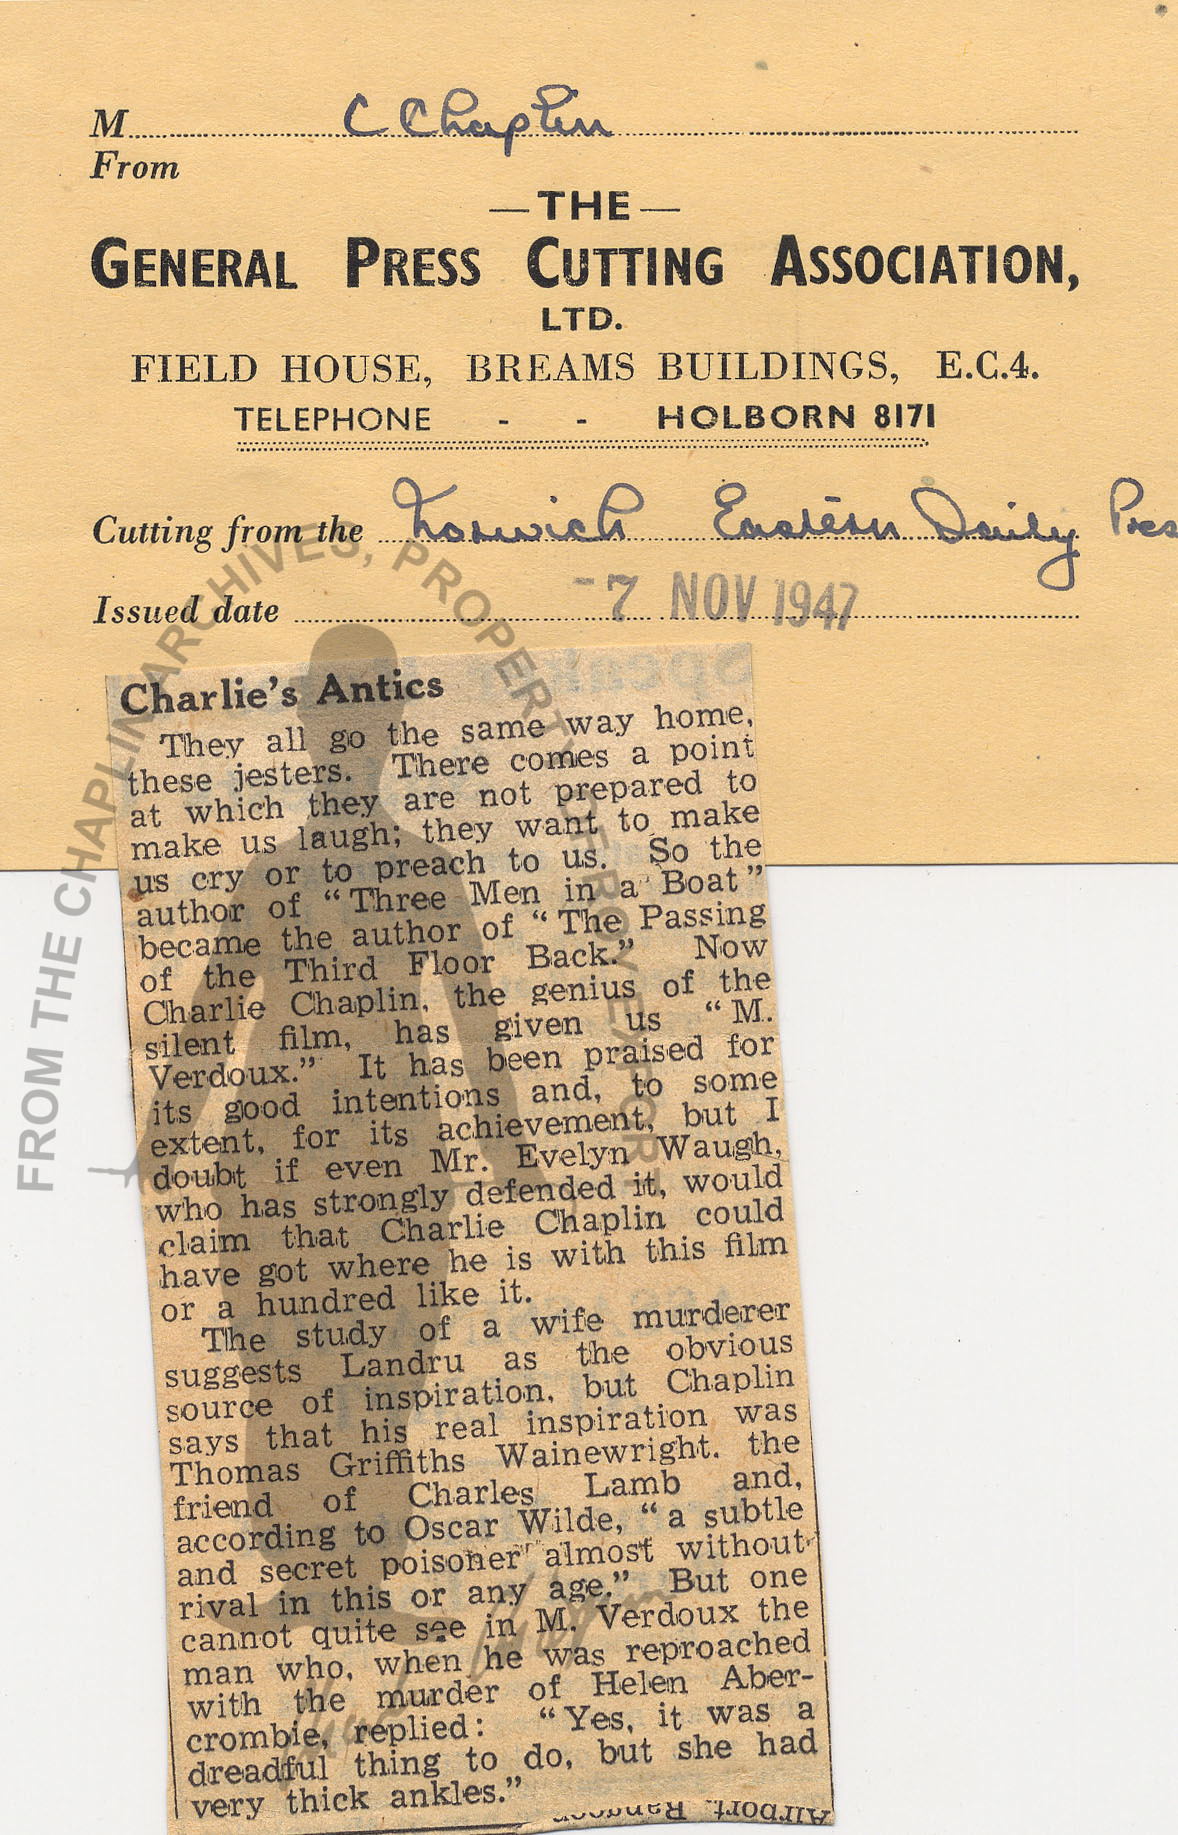 M C Chaplin
From
— THE —
GENERAL PRESS CUTTING ASSOCIATION,
LTD.
FIELD HOUSE, BREAMS BUILDINGS, E.C.4.
TELEPHONE - - HOLBORN 8171
Cutting from the Norwich Eastern Daily Pres
Issued date -7 NOV 1947
Charlie's Antics
They all go the same way home,
these jesters. There comes a point
at which they are not prepared to
make us laugh; they want to make
us cry or to preach to us. So the
author of "Three Men in a Boat"
became the author of "The Passing
of the Third Floor Back." Now
Charlie Chaplin, the genius of the
silent film, has given us "M.
Verdoux." It has been praised for
its good intentions and, to some
extent, for its achievement, but I
doubt if even Mr. Evelyn Waugh,
who has strongly defended it, would
claim that Charlie Chaplin could
have got where he is with this film
or a hundred like it.
The study of a wife murderer
suggests Landru as the obvious
source of inspiration, but Chaplin
says that his real inspiration was
Thomas Griffiths Wainewright, the
friend of Charles Lamb and,
according to Oscar Wilde, "a subtle
and secret poisoner almost without
rival in this or any age." But one
cannot quite see in M. Verdoux the
man who, when he was reproached
with the murder of Helen Aber-
crombie, replied: "Yes, it was a
dreadful thing to do, but she had
very thick ankles."
Airport,
FROM THE CHAPLIN ARCHIVES, PROPERTY OF ROY EXPORT